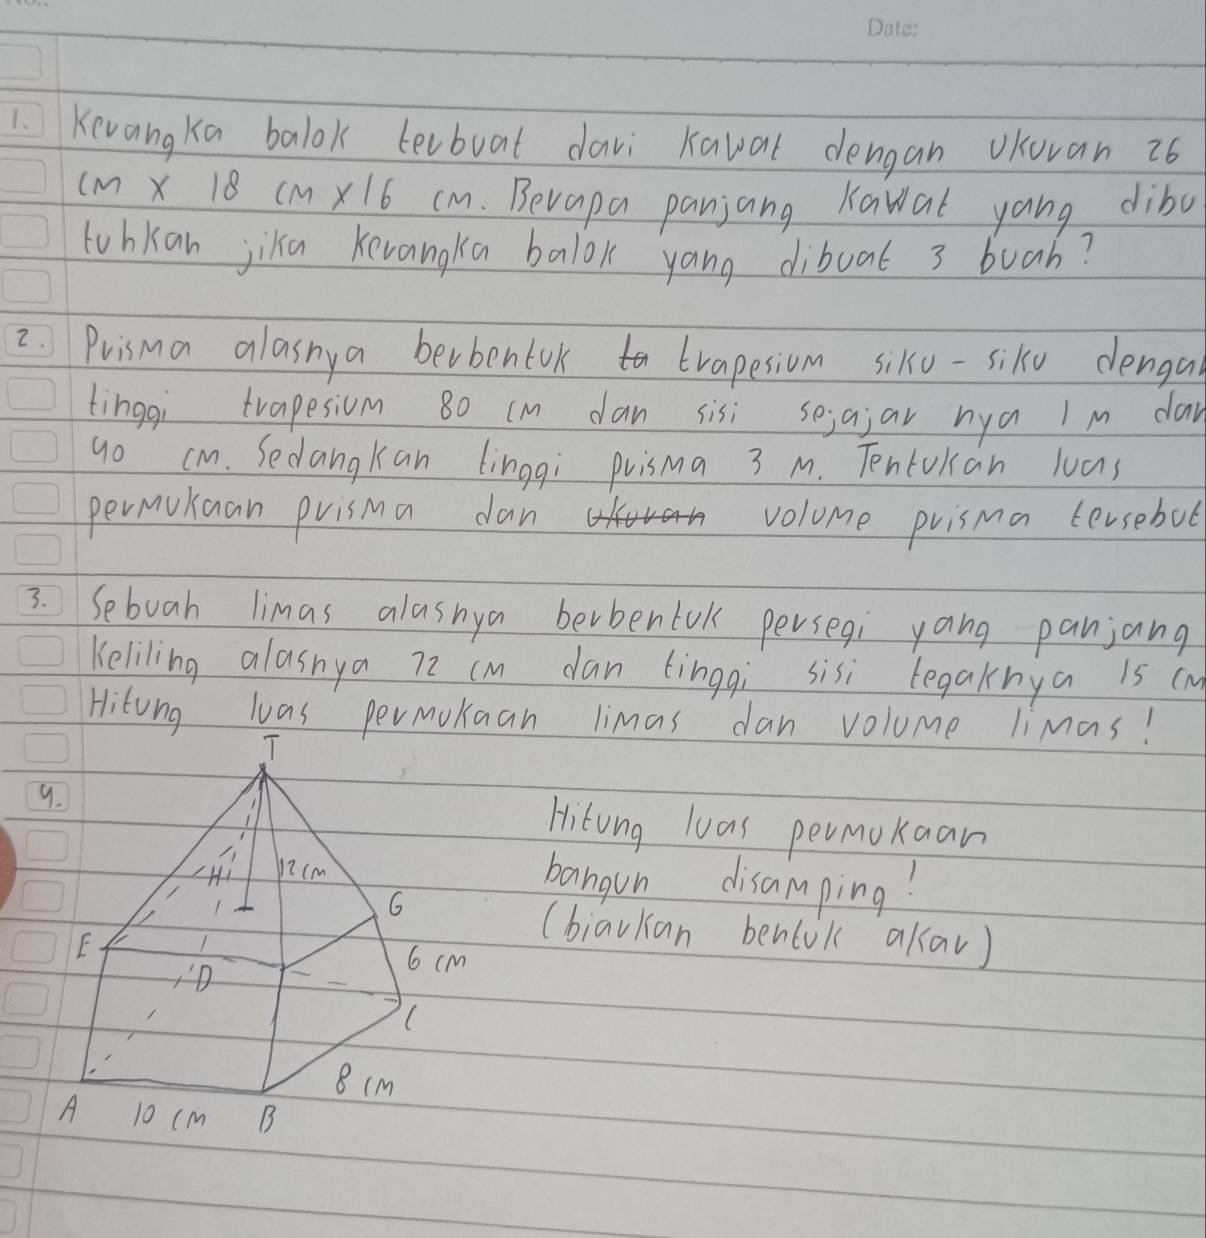 Date:
1. Kerangka balok terbuat dari kawat dengan ukuran 26
cm x 18 cm x 16 cm. Berapa panjang kawat yang dibu
tuhkan jika kerangka balok yang dibuat 3 buah?
2. Prisma alasnya berbentuk ta trapesium siku-siku denga
tinggi trapesium 80 cm dan sisi sejajar nya 1 m dan
40 cm. Sedangkan tinggi prisma 3 m. Tentukan luas
permukaan prisma dan ukuran volume prisma tersebut
3. Sebuah limas alasnya berbentuk persegi yang panjang
keliling alasnya 72 cm dan tinggi sisi tegaknya 15 cm
Hitung luas permukaan limas dan volume limas!
4.
T
Hitung luas permukaan
bangun disamping!
(biarkan bentuk akar)
H
12 cm
G
E
6 cm
D
C
8 cm
A
10 cm
B